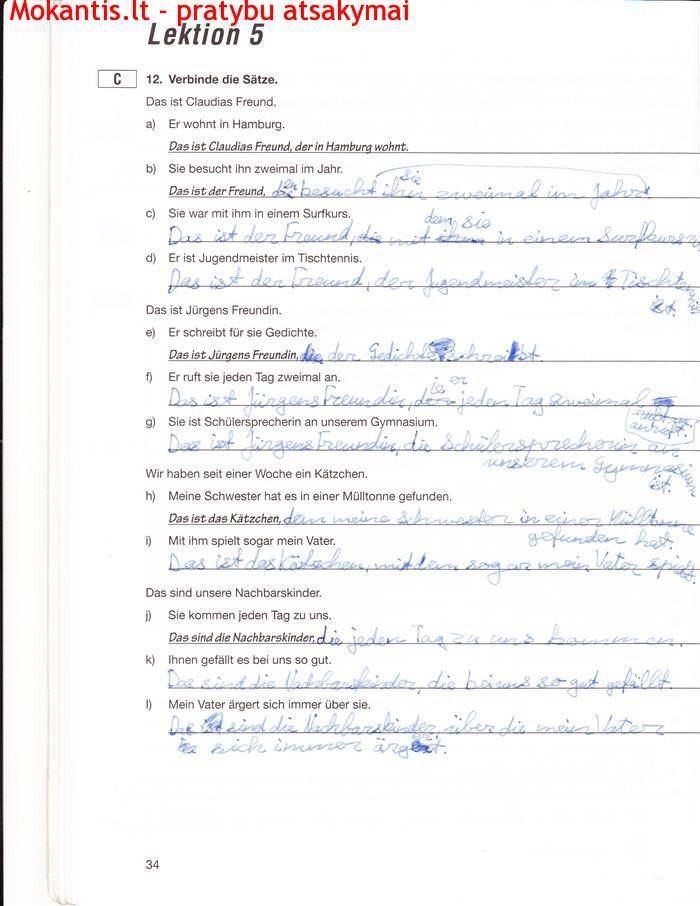 Mokantis.lt - pratybu atsakymai
Lektion 5
C 12. Verbinde die Sätze.
Das ist Claudias Freund.
a) Er wohnt in Hamburg.
Das ist Claudias Freund, der in Hamburg wohnt.
b) Sie besucht ihn zweimal im Jahr.
sie
Das ist der Freund, den besucht ihn zweimal im Jahr.
c) Sie war mit ihm in einem Surfkurs.
dem sie
Das ist der Freund, die mit ihm in einem Surfkurs
d) Er ist Jugendmeister im Tischtennis.
Das ist der Freund, der Jugendmeister im Tischten
ist.
Das ist Jürgens Freundin.
e) Er schreibt für sie Gedichte.
Das ist Jürgens Freundin, die der Gedichte schreibt.
f) Er ruft sie jeden Tag zweimal an.
ie er
Das ist Jürgens Freundin, der jeden Tag zweimal
anruft.
g) Sie ist Schülersprecherin an unserem Gymnasium.
Das ist Jürgens Freundin, die Schülersprecherin an
unserem Gymnasium
ist.
Wir haben seit einer Woche ein Kätzchen.
h) Meine Schwester hat es in einer Mülltonne gefunden.
Das ist das Kätzchen, dem meine Schwester in einer Mülltonne
gefunden hat.
i) Mit ihm spielt sogar mein Vater.
Das ist das Kätzchen, mit dem sogar mein Vater spielt.
Das sind unsere Nachbarskinder.
j) Sie kommen jeden Tag zu uns.
Das sind die Nachbarskinder, die jeden Tag zu uns kommen.
k) Ihnen gefällt es bei uns so gut.
Das sind die Nachbarskinder, die bei uns so gut gefällt.
l) Mein Vater ärgert sich immer über sie.
Das sind die Nachbarskinder, über die mein Vater
sich immer ärgert.
34